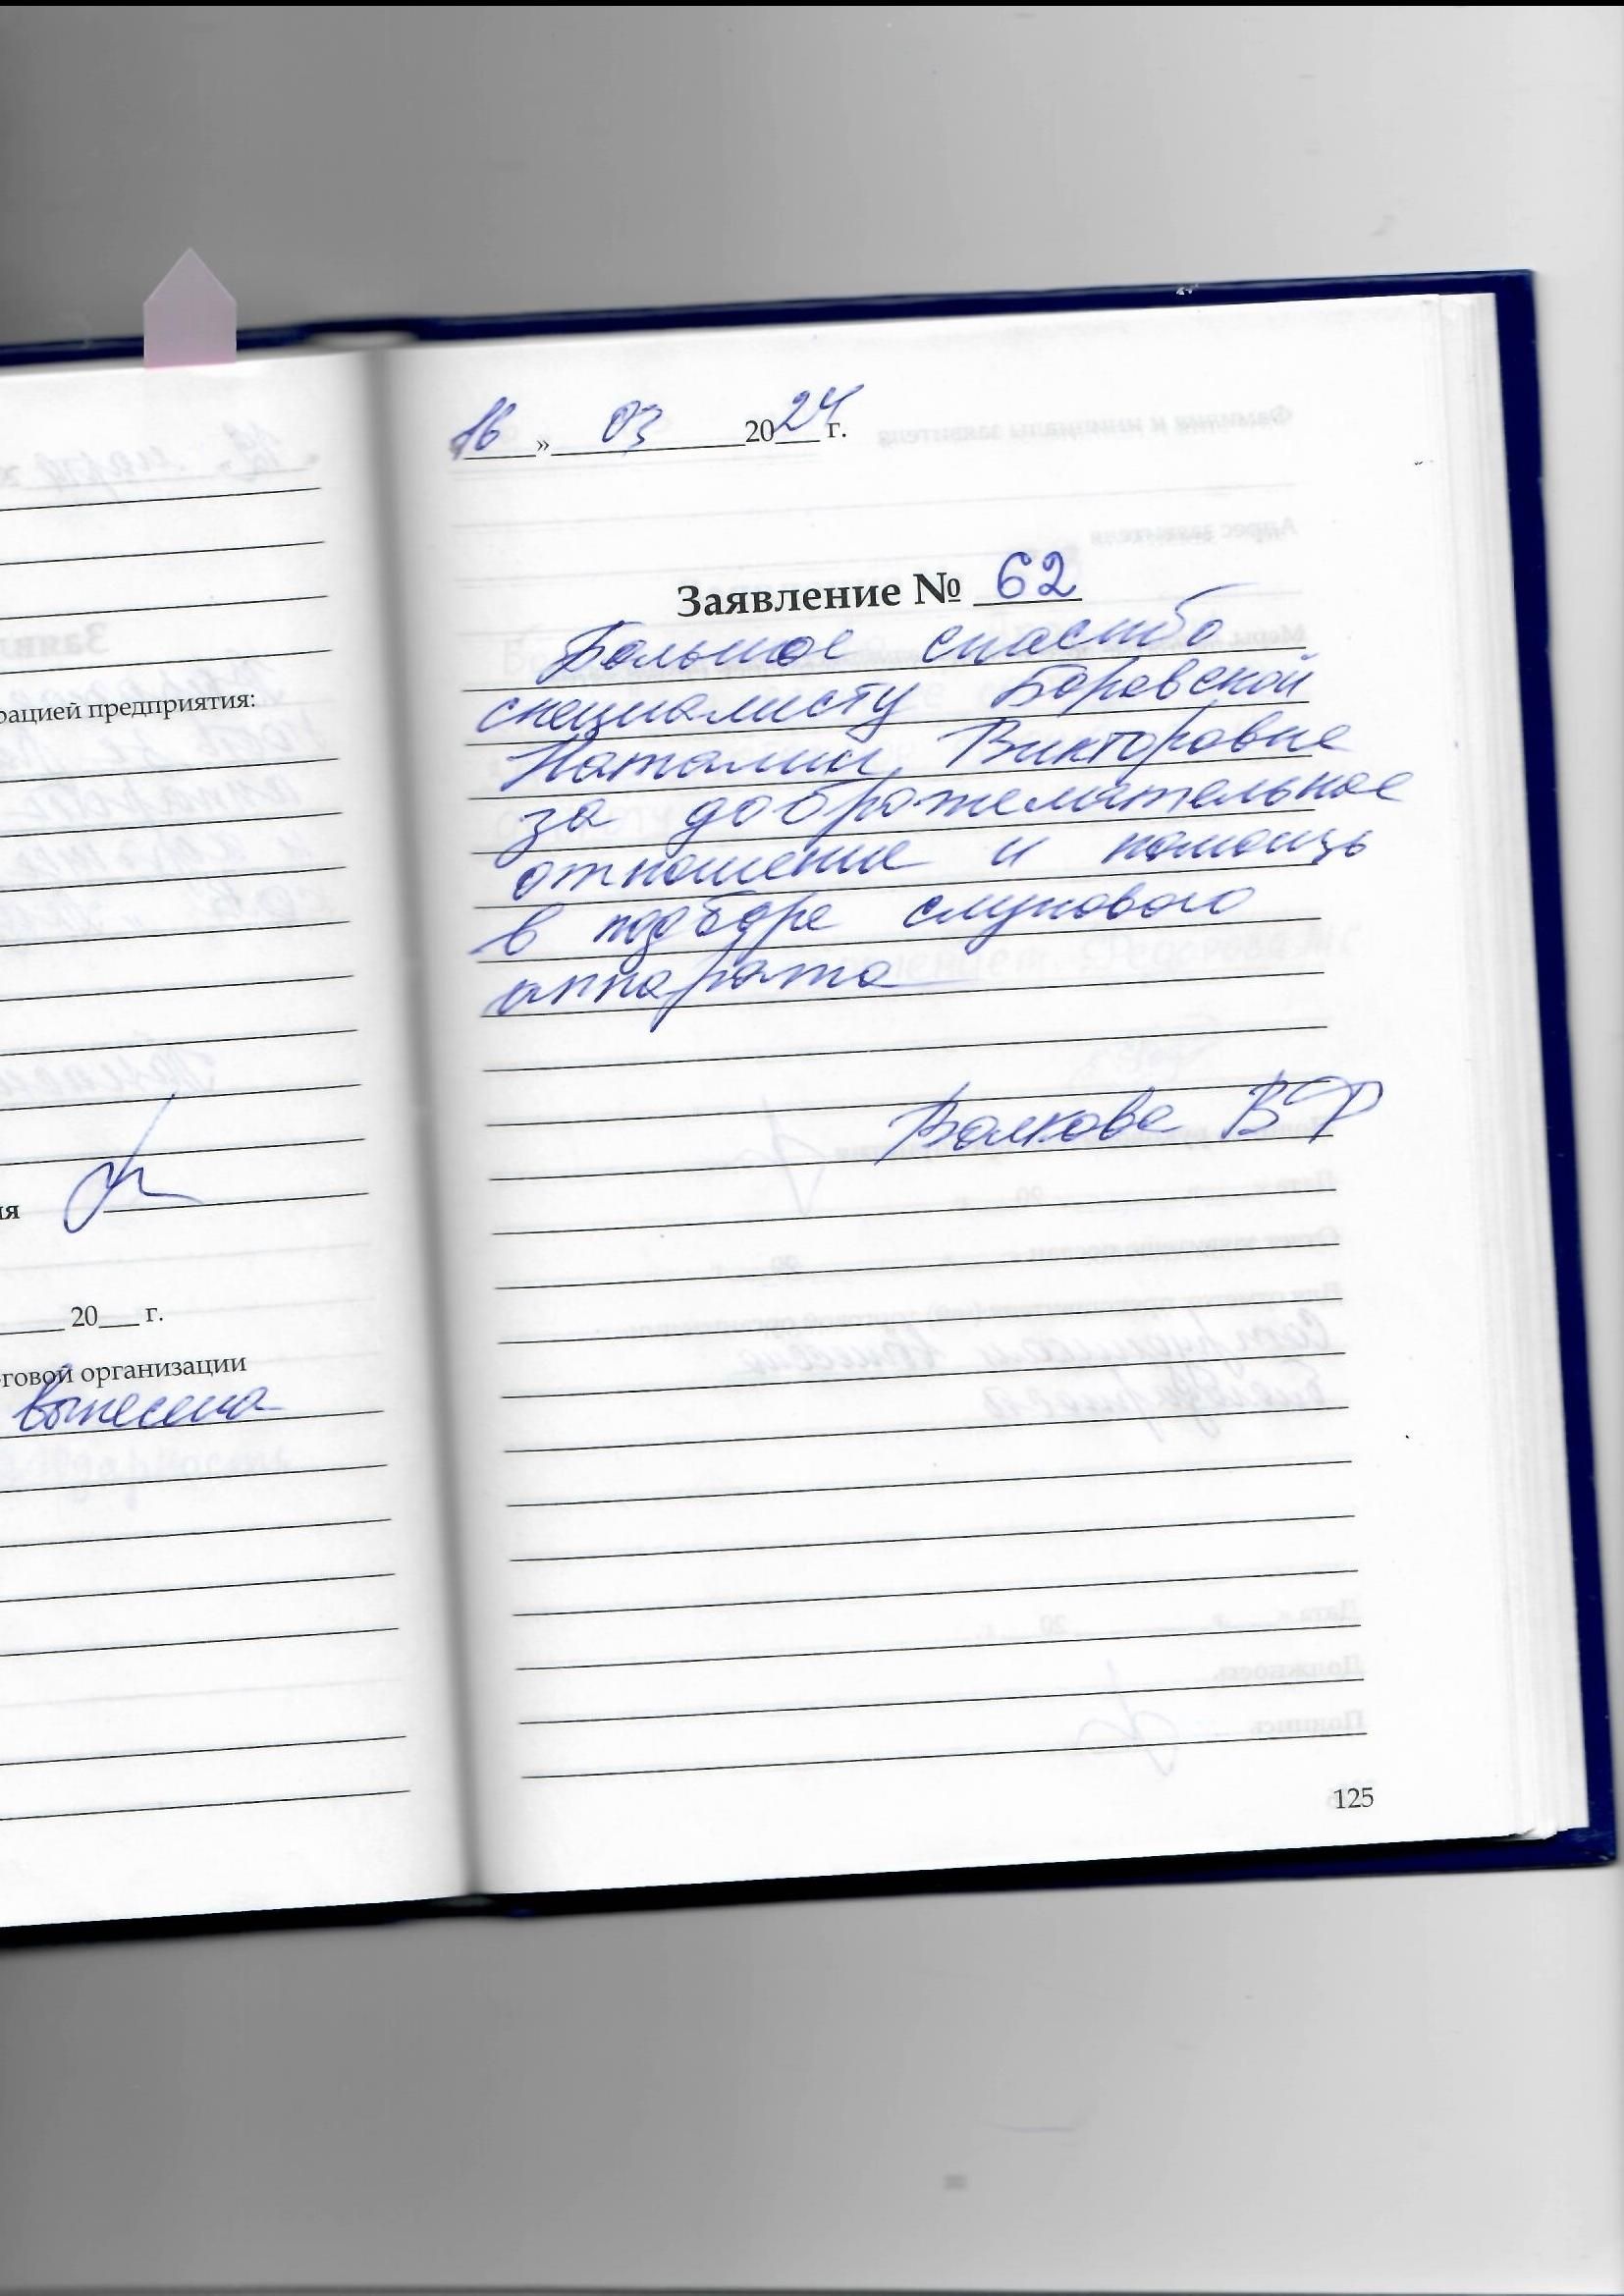 рацией предприятия:
ия
20 г.
говой организации
вынесена
16 » 03 2024 г.
Заявление № 62
Большое спасибо
специалисту Боровской
Наталии Викторовне
за доброжелательное
отношение и помощь
в подборе слухового
аппарата
Волкова ВФ
125